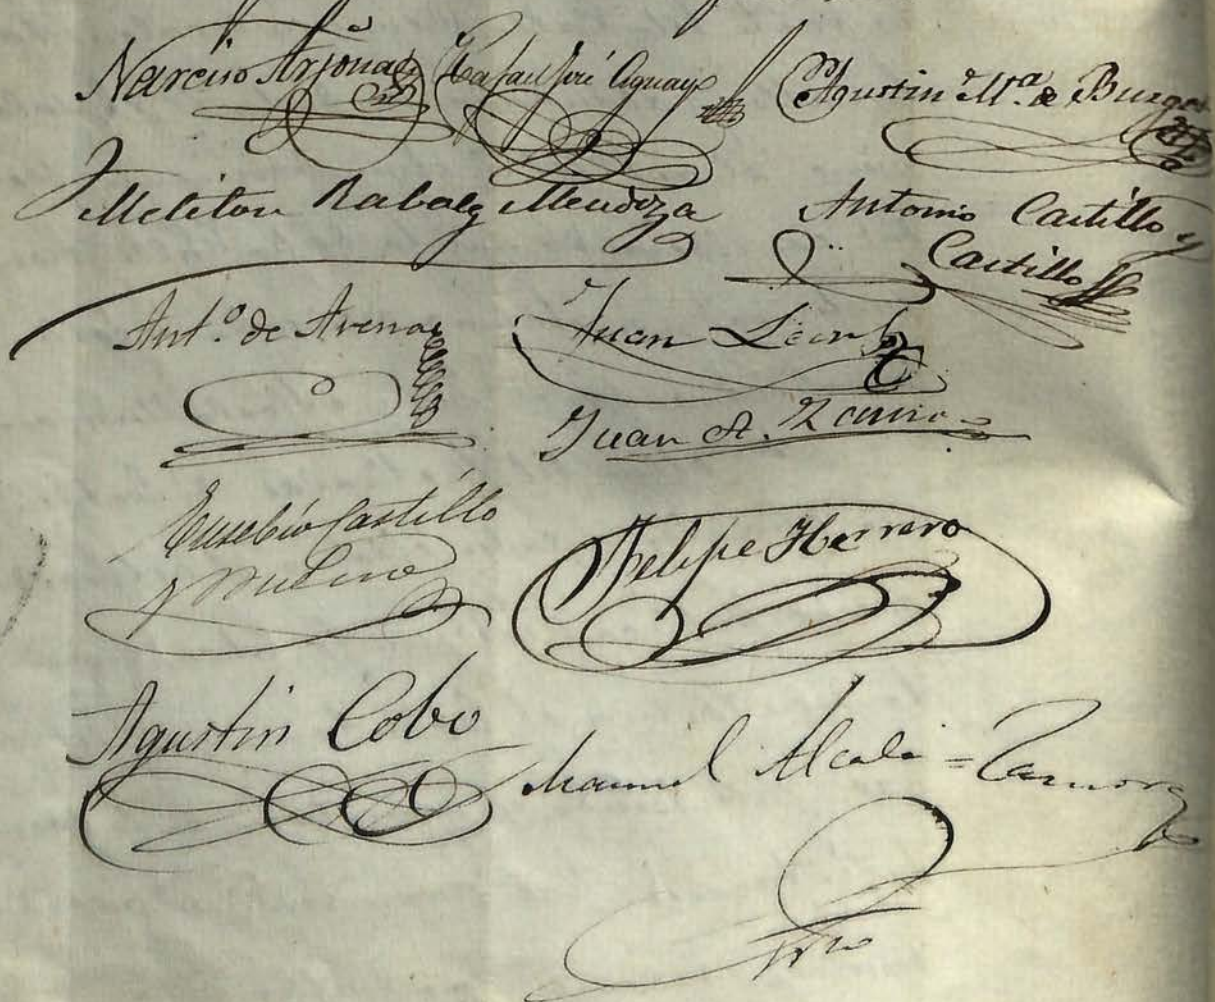 Narciso Arjona Rafael José Aguayo Agustin Mª. de Burgos
Meliton Mendoza Antonio Castillo y
Castillo
Antº. de Arenas Juan Leon
Juan A.
Eusebio Castillo Felipe Herrero
y
Agustin Cobo Manuel Alcalá-Zamora